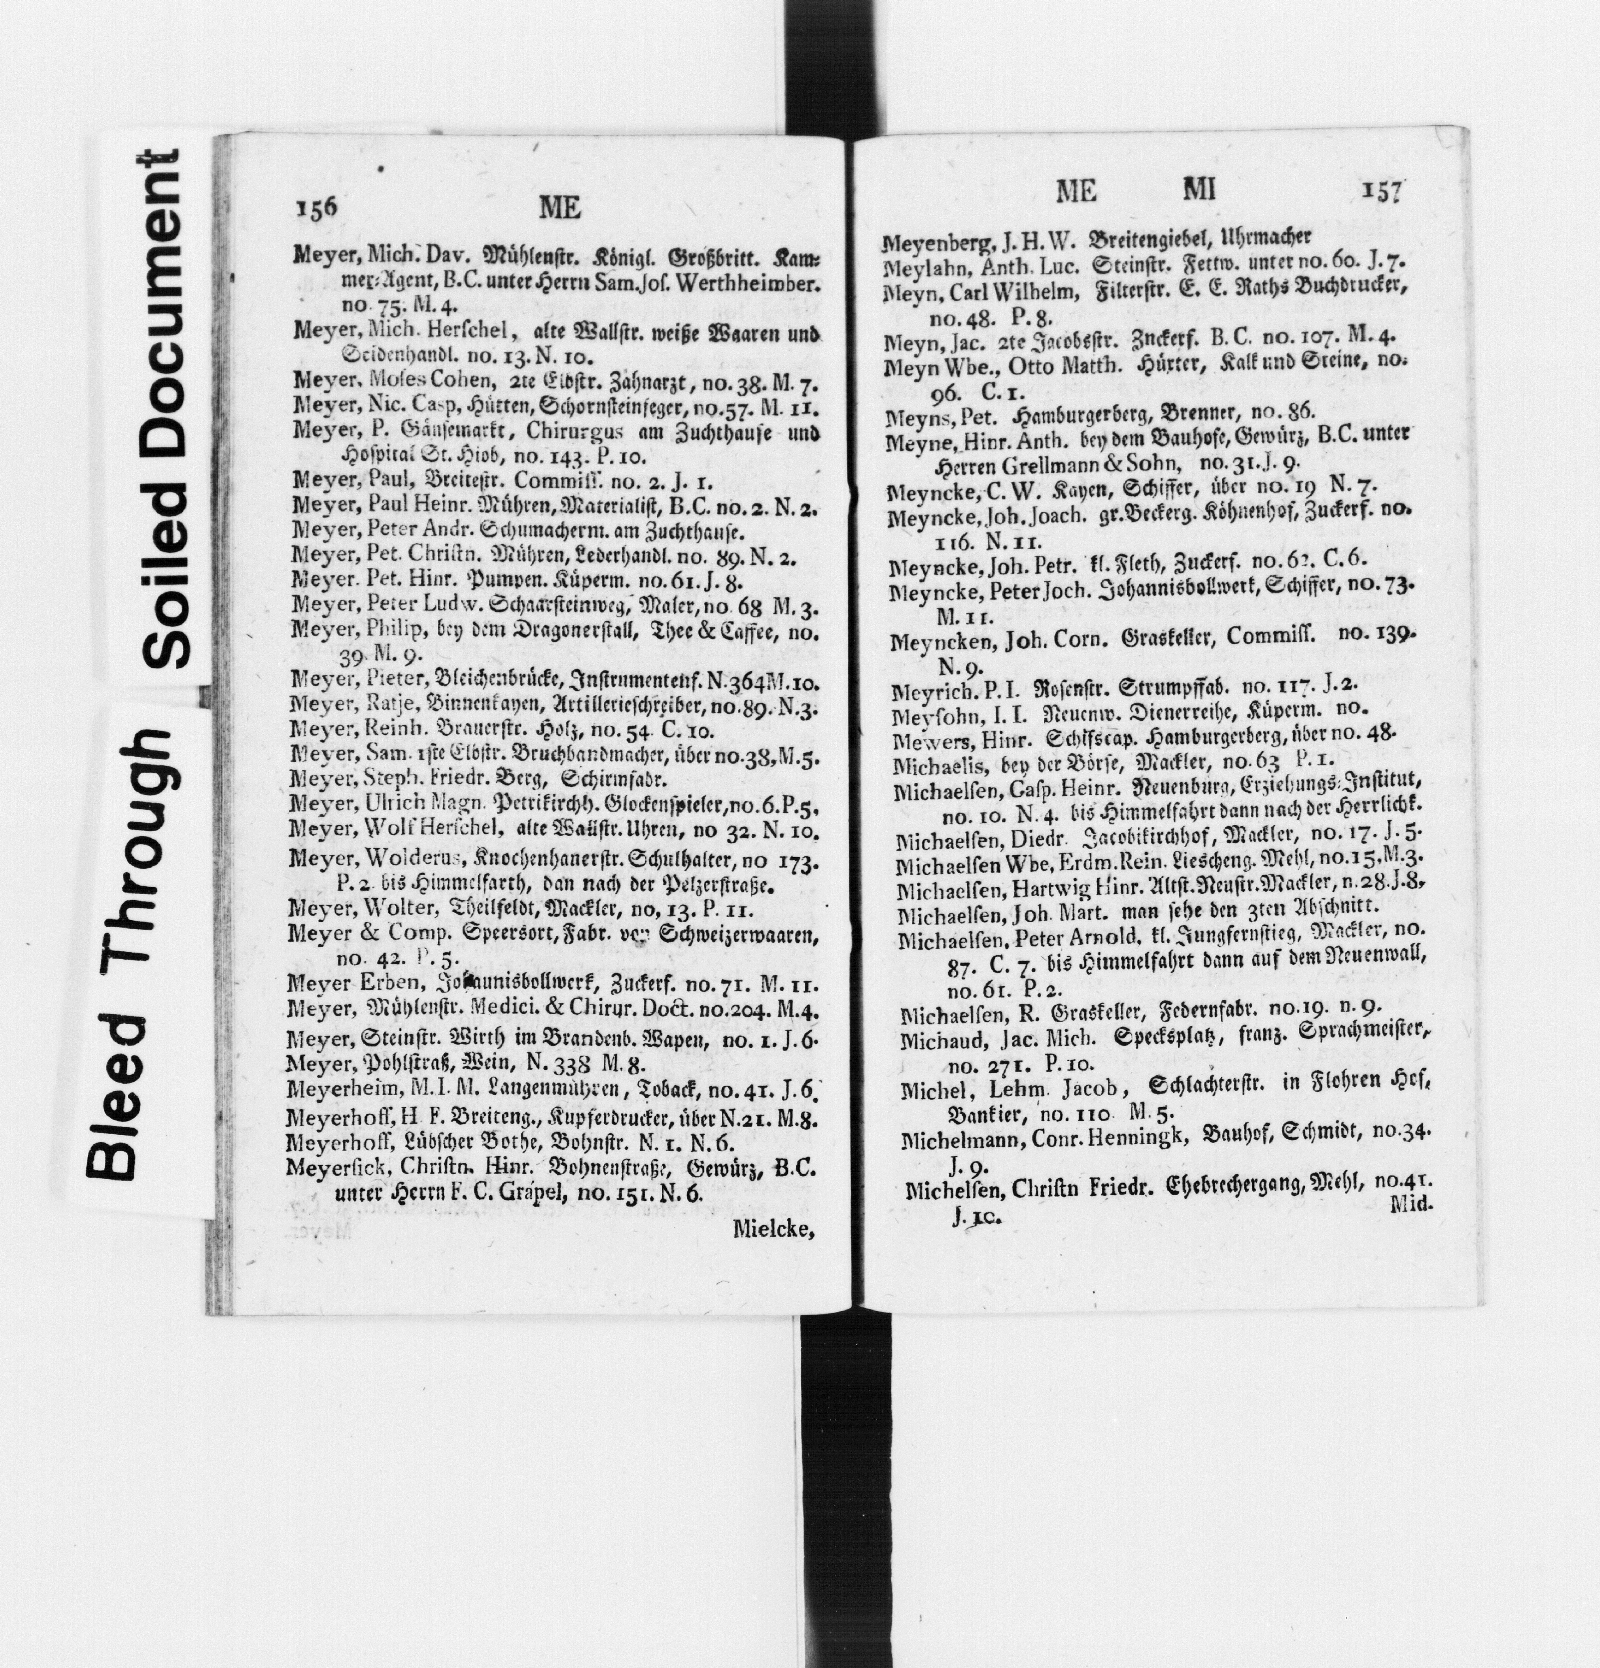 Soiled Document
Bleed Through
156 ME
Meyer, Mich. Dav. Mühlenstr. Königl. Großbritt. Kam-
mer-Agent, B.C. unter Herrn Sam. Jos. Werthheimber.
no. 75. M. 4.
Meyer, Mich. Herschel, alte Wallstr. weiße Waaren und
Seidenhandl. no. 13. N. 10.
Meyer, Moses Cohen, 2te Elbstr. Zahnarzt, no. 38. M. 7.
Meyer, Nic. Casp, Hütten, Schornsteinfeger, no. 57. M. 11.
Meyer, P. Gänsemarkt, Chirurgus am Zuchthause und
Hospital St. Hiob, no. 143. P. 10.
Meyer, Paul, Breitestr. Commiss. no. 2. J. 1.
Meyer, Paul Heinr. Mühren, Materialist, B.C. no. 2. N. 2.
Meyer, Peter Andr. Schumacherm. am Zuchthause.
Meyer, Pet. Christn. Mühren, Lederhandl. no. 89. N. 2.
Meyer. Pet. Hinr. Pumpen. Küperm. no. 61. J. 8.
Meyer, Peter Ludw. Schaarsteinweg, Maler, no. 68 M. 3.
Meyer, Philip, bey dem Dragonerstall, Thee & Caffee, no.
39. M. 9.
Meyer, Pieter, Bleichenbrücke, Instrumentenf. N. 364 M. 10.
Meyer, Ratje, Binnenkayen, Artillerieschreiber, no. 89. N. 3.
Meyer, Reinh. Brauerstr. Holz, no. 54. C. 10.
Meyer, Sam. 1ste Elbstr. Bruchbandmacher, über no. 38, M. 5.
Meyer, Steph. Friedr. Berg, Schirmfabr.
Meyer, Ulrich Magn. Petrikirchh. Glockenspieler, no. 6. P. 5.
Meyer, Wolf Herschel, alte Wallstr. Uhren, no 32. N. 10.
Meyer, Wolderus, Knochenhauerstr. Schulhalter, no 173.
P. 2. bis Himmelfarth, dan nach der Pelzerstraße.
Meyer, Wolter, Theilfeldt, Mackler, no, 13. P. 11.
Meyer & Comp. Speersort, Fabr. von Schweizerwaaren,
no. 42. P. 5.
Meyer Erben, Johannisbollwerk, Zuckerf. no. 71. M. 11.
Meyer, Mühlenstr. Medici. & Chirur. Doct. no. 204. M. 4.
Meyer, Steinstr. Wirth im Brandenb. Wapen, no. 1. J. 6.
Meyer, Pohlstraß, Wein, N. 338 M. 8.
Meyerheim, M. I. M. Langenmühren, Toback, no. 41. J. 6.
Meyerhoff, H. F. Breiteng., Kupferdrucker, über N. 21. M. 8.
Meyerhoff, Lübscher Bothe, Bohnstr. N. 1. N. 6.
Meyersick, Christn. Hinr. Bohnenstraße, Gewürz, B.C.
unter Herrn F. C. Grapel, no. 151. N. 6.
Mielcke,
ME MI 157
Meyenberg, J. H. W. Breitengiebel, Uhrmacher
Meylahn, Anth. Luc. Steinstr. Fettw. unter no. 60. J. 7.
Meyn, Carl Wilhelm, Filterstr. E. E. Raths Buchdrucker,
no. 48. P. 8.
Meyn, Jac. 2te Jacobsstr. Zuckerf. B. C. no. 107. M. 4.
Meyn Wbe., Otto Matth. Hüxter, Kalk und Steine, no.
96. C. 1.
Meyns, Pet. Hamburgerberg, Brenner, no. 86.
Meyne, Hinr. Anth. bey dem Bauhofe, Gewürz, B.C. unter
Herren Grellmann & Sohn, no. 31. J. 9.
Meyncke, C. W. Kayen, Schiffer, über no. 19 N. 7.
Meyncke, Joh. Joach. gr. Beckerg. Köhnenhof, Zuckerf. no.
116. N. 11.
Meyncke, Joh. Petr. kl. Fleth, Zuckerf. no. 62. C. 6.
Meyncke, Peter Joch. Johannisbollwerk, Schiffer, no. 73.
M. 11.
Meyncken, Joh. Corn. Graskeller, Commiss. no. 139.
N. 9.
Meyrich. P. I. Rosenstr. Strumpffab. no. 117. J. 2.
Meysohn, I. I. Neuenw. Dienerreihe, Küperm. no.
Mewers, Hinr. Schifscap. Hamburgerberg, über no. 48.
Michaelis, bey der Börse, Mackler, no. 63 P. 1.
Michaelsen, Casp. Heinr. Neuenburg, Erziehungs-Institut,
no. 10. N. 4. bis Himmelfahrt dann nach der Herrlichk.
Michaelsen, Diedr. Jacobikirchhof, Mackler, no. 17. J. 5.
Michaelsen Wbe, Erdm. Rein. Liescheng. Mehl, no. 15. M. 3.
Michaelsen, Hartwig Hinr. Altst. Neustr. Mackler, n. 28. J. 8.
Michaelsen, Joh. Mart. man sehe den 3ten Abschnitt.
Michaelsen, Peter Arnold, kl. Jungfernstieg, Mackler, no.
87. C. 7. bis Himmelfahrt dann auf dem Neuenwall,
no. 61. P. 2.
Michaelsen, R. Graskeller, Federnfabr. no. 19. n. 9.
Michaud, Jac. Mich. Specksplatz, franz. Sprachmeister,
no. 271. P. 10.
Michel, Lehm. Jacob, Schlachterstr. in Flohren Hof,
Bankier, no. 110 M. 5.
Michelmann, Conr. Henningk, Bauhof, Schmidt, no. 34.
J. 9.
Michelsen, Christn Friedr. Ehebrechergang, Mehl, no. 41.
J. 10.
Mid.